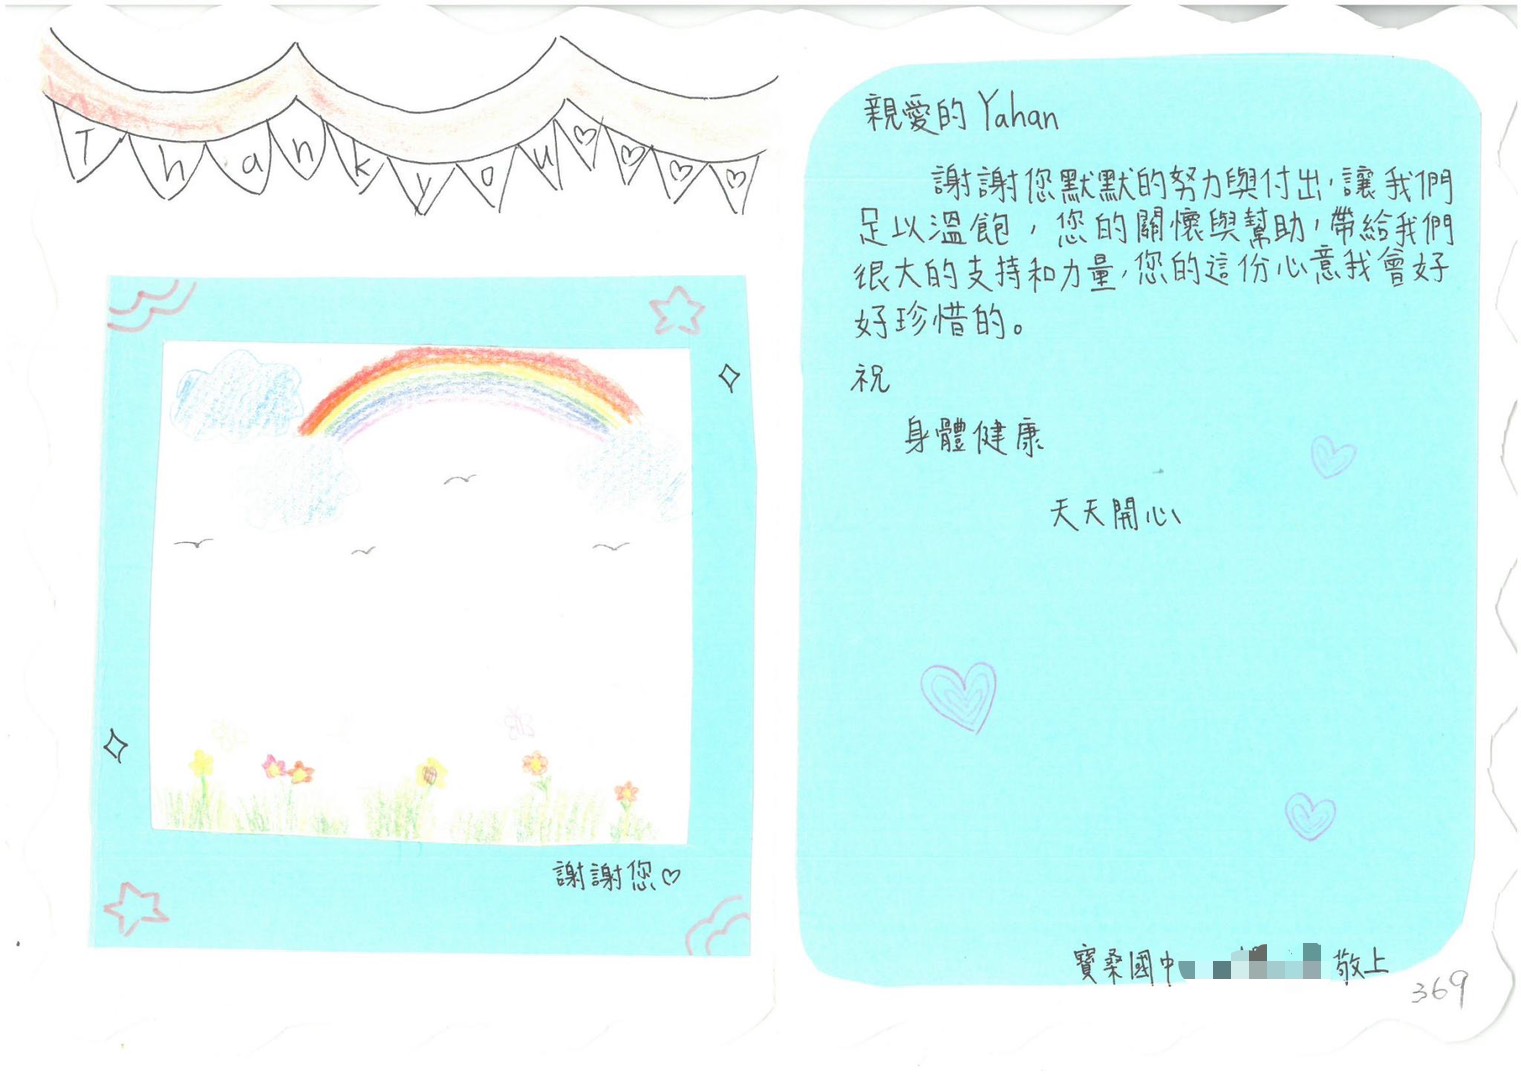 Thank you
謝謝您
親愛的 Yahan
謝謝您默默的努力與付出,讓我們
足以溫飽,您的關懷與幫助,帶給我們
很大的支持和力量,您的這份心意我會好
好珍惜的。
祝
身體健康
天天開心
寶桑國中 敬上
369